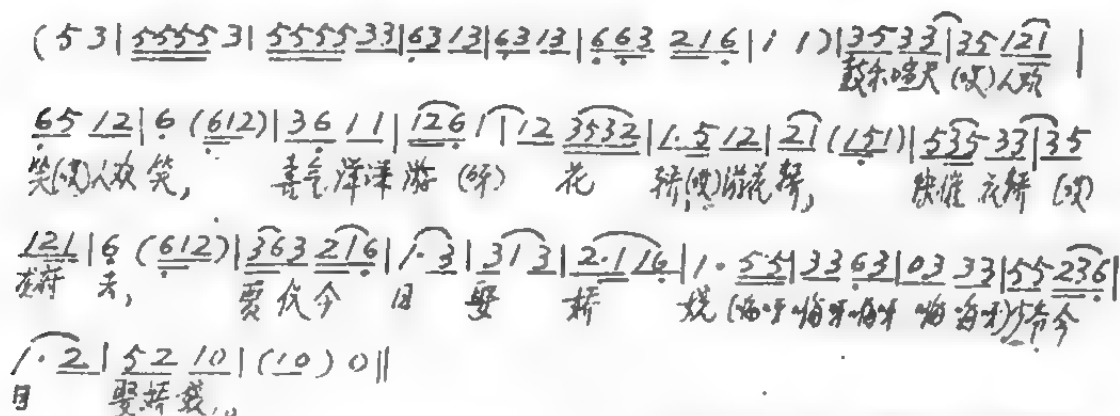 (5 3|5555 3|5555 33|63 13|63 13|663 216|i 1)|35 33|35 121|
鼓乐喧天(哎)人欢
65 12|6 (612)|36 11|126 1|12 3532|1.5 12|21 (151)|535 33|35
笑(哎)人欢笑, 喜气洋洋游(呀) 花 轿(哎)游花轿, 快催花轿(哎)
121|6 (612)|363 216|1.3|313|2.116|1. 55|33 63|03 33|55 236|
府去, 贾 今 日 娶 娇 娆
1. 2|52 10|(10) 0‖
日 娶娇娆。